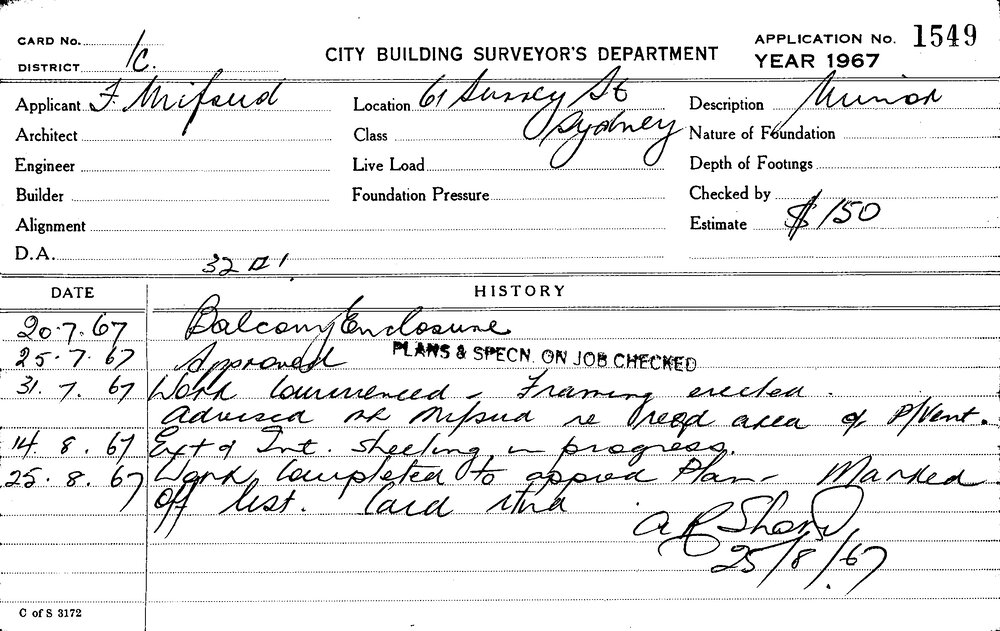 CARD No.
DISTRICT 1C.
CITY BUILDING SURVEYOR'S DEPARTMENT
APPLICATION No. 1549
YEAR 1967
Applicant F. Mifsud
Location 61 Surrey St
Sydney
Description Minor
Architect
Class
Nature of Foundation
Engineer
Live Load
Depth of Footings
Builder
Foundation Pressure
Checked by
Alignment
Estimate $150
D.A.
32
DATE
HISTORY
20.7.67 Balcony Enclosure
25.7.67 Approved PLANS & SPECN. ON JOB CHECKED
31.7.67 Work Commenced - Framing erected.
Advised Mr Mifsud re reqd area of P/Vent.
14.8.67 Ext & Int. sheeting in progress.
25.8.67 Work completed to approd Plan - Marked
off list. Card rtnd
25/8/67
C of S 3172